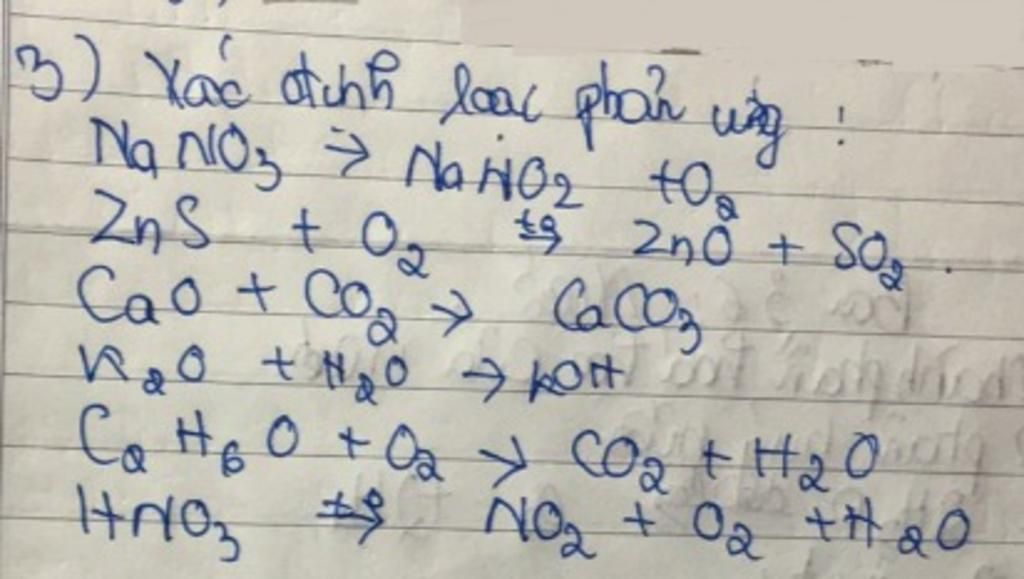 3) Xác định loại phản ứng :
NaNO3 → NaNO2 + O2
ZnS + O2 t° → ZnO + SO2 .
CaO + CO2 → CaCO3
K2O + H2O → KOH
C2H6O + O2 → CO2 + H2O
HNO3 t° → NO2 + O2 + H2O